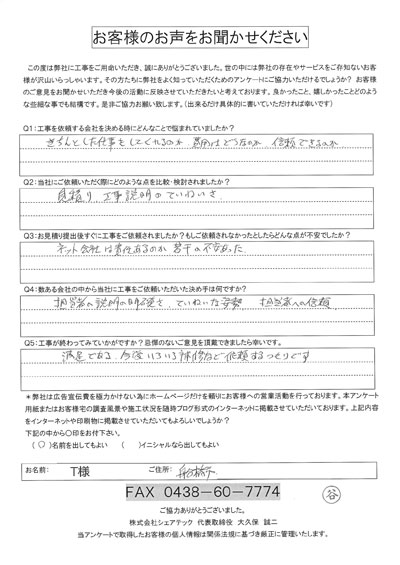 お客様のお声をお聞かせください
この度は弊社に工事をご用命いただき、誠にありがとうございました。世の中には弊社の存在やサービスをご存知ないお客
様が沢山いらっしゃいます。その方たちに弊社をよく知っていただくためのアンケートにご協力いただけるでしょうか？ お客様
のご意見をお聞かせいただき今後の活動に反映させていきたいと考えております。良かったこと、嬉しかったことどのよう
な些細な事でも結構です。是非ご協力お願い致します。（出来るだけ具体的に書いていただければ幸いです）
Q1：工事を依頼する会社を決める時にどんなことで悩まれていましたか？
きちんとした仕事をしてくれるのか、費用はどうなのか、信頼できるのか
Q2：当社にご依頼いただく際にどのような点を比較・検討されましたか？
見積り、工事説明のていねいさ
Q3：お見積り提出後すぐに工事ご依頼されましたか？もしご依頼されなかったとしたらどんな点が不安でしたか？
ネット会社は責任あるのか 若干の不安あった
Q4：数ある会社の中から当社に工事をご依頼いただいた決め手は何ですか？
担当者の説明の明確さ、ていねいな姿勢 担当者への信頼
Q5：工事が終わってみていかがですか？忌憚のないご意見を頂戴できましたら幸いです。
満足である、今後いろいろ補修など依頼するつもりです
＊弊社は広告宣伝費を極力かけない為にホームページだけを頼りにお客様への営業活動を行っております。本アンケート
用紙またはお客様宅の調査風景や施工状況を随時ブログ形式のインターネットに掲載させていただいております。上記内容
をインターネットや印刷物に掲載させていただいてもよろしいでしょうか？
下記の中から〇印をお付下さい。
（○）名前を出してもよい （ ）イニシャルなら出してもよい
お名前： T様 ご住所： 船橋市
FAX 0438－60－7774
谷
ご協力ありがとうございました。
株式会社シェアテック 代表取締役 大久保 誠二
当アンケートで取得したお客様の個人情報は関係法規に基づき厳正に管理いたします。